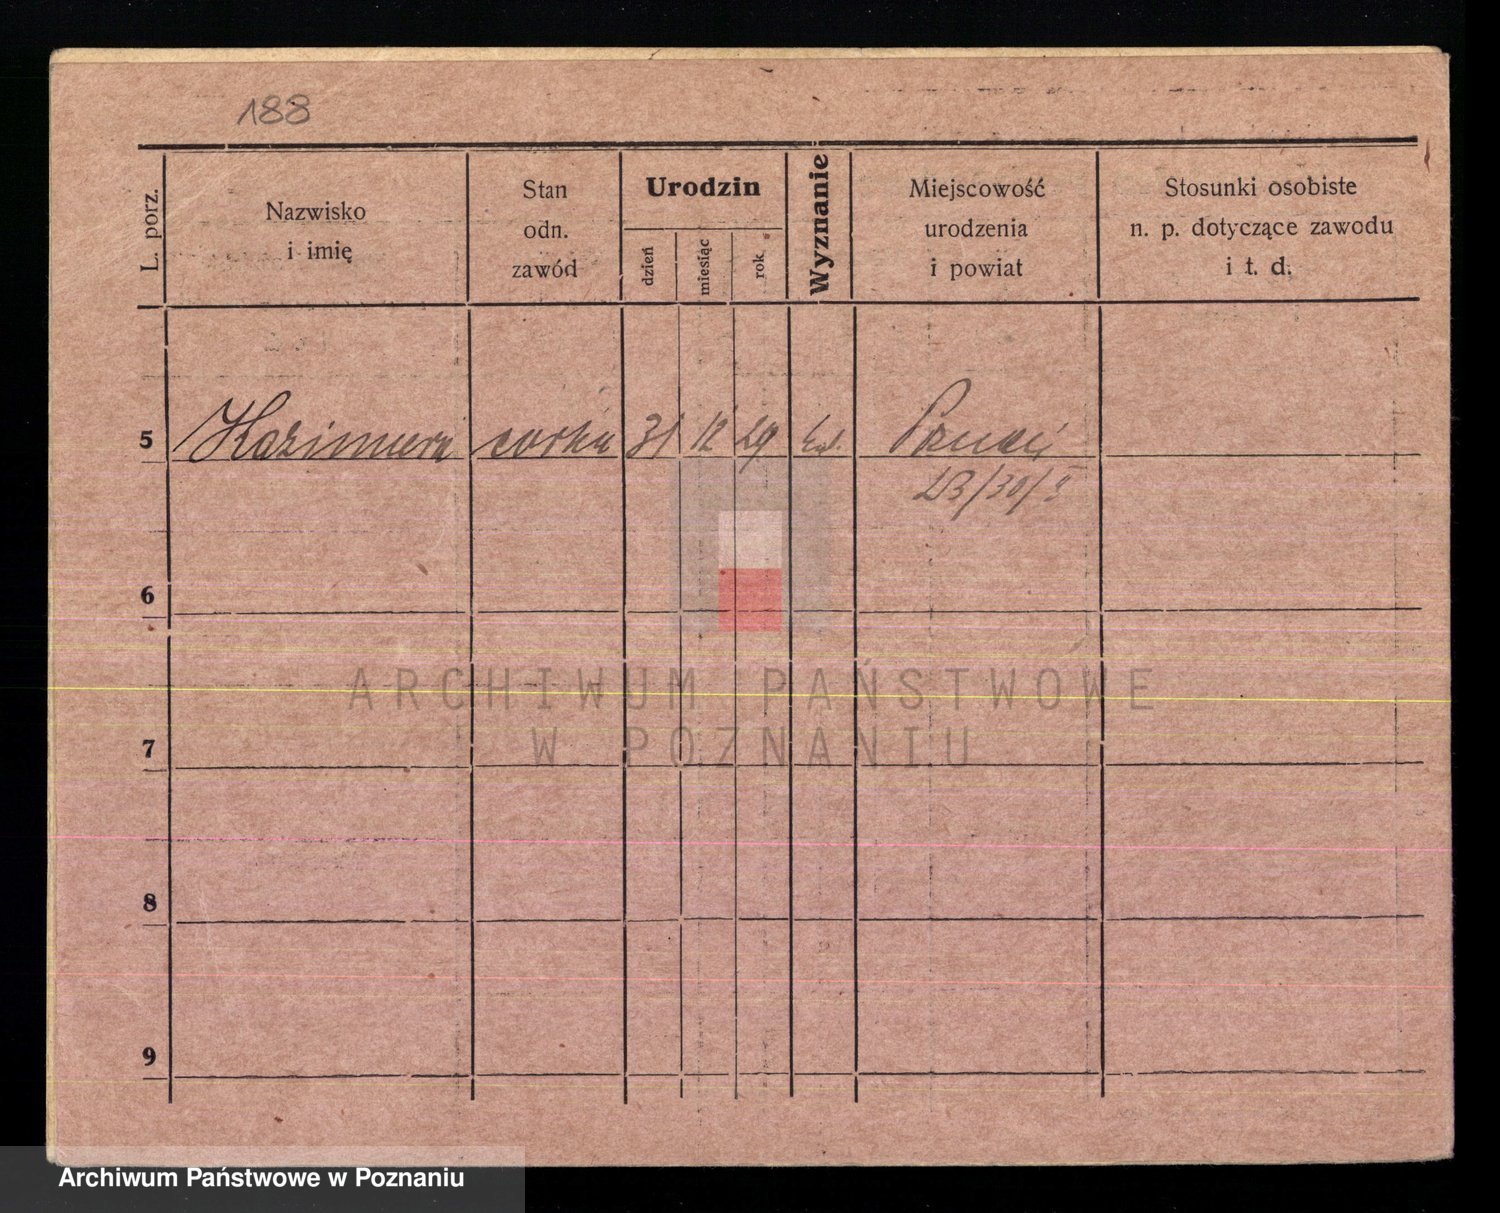 188
L. porz.
Nazwisko
i imię
Stan
odn.
zawód
Urodzin
dzień
miesiąc
rok
Wyznanie
Miejscowość
urodzenia
i powiat
Stosunki osobiste
n. p. dotyczące zawodu
i t. d.
5 Kazimiera córka 31 12 29 Poznań
23/30/I
6
ARCHIWUM PAŃSTWOWE
W POZNANIU
7
8
9
Archiwum Państwowe w Poznaniu